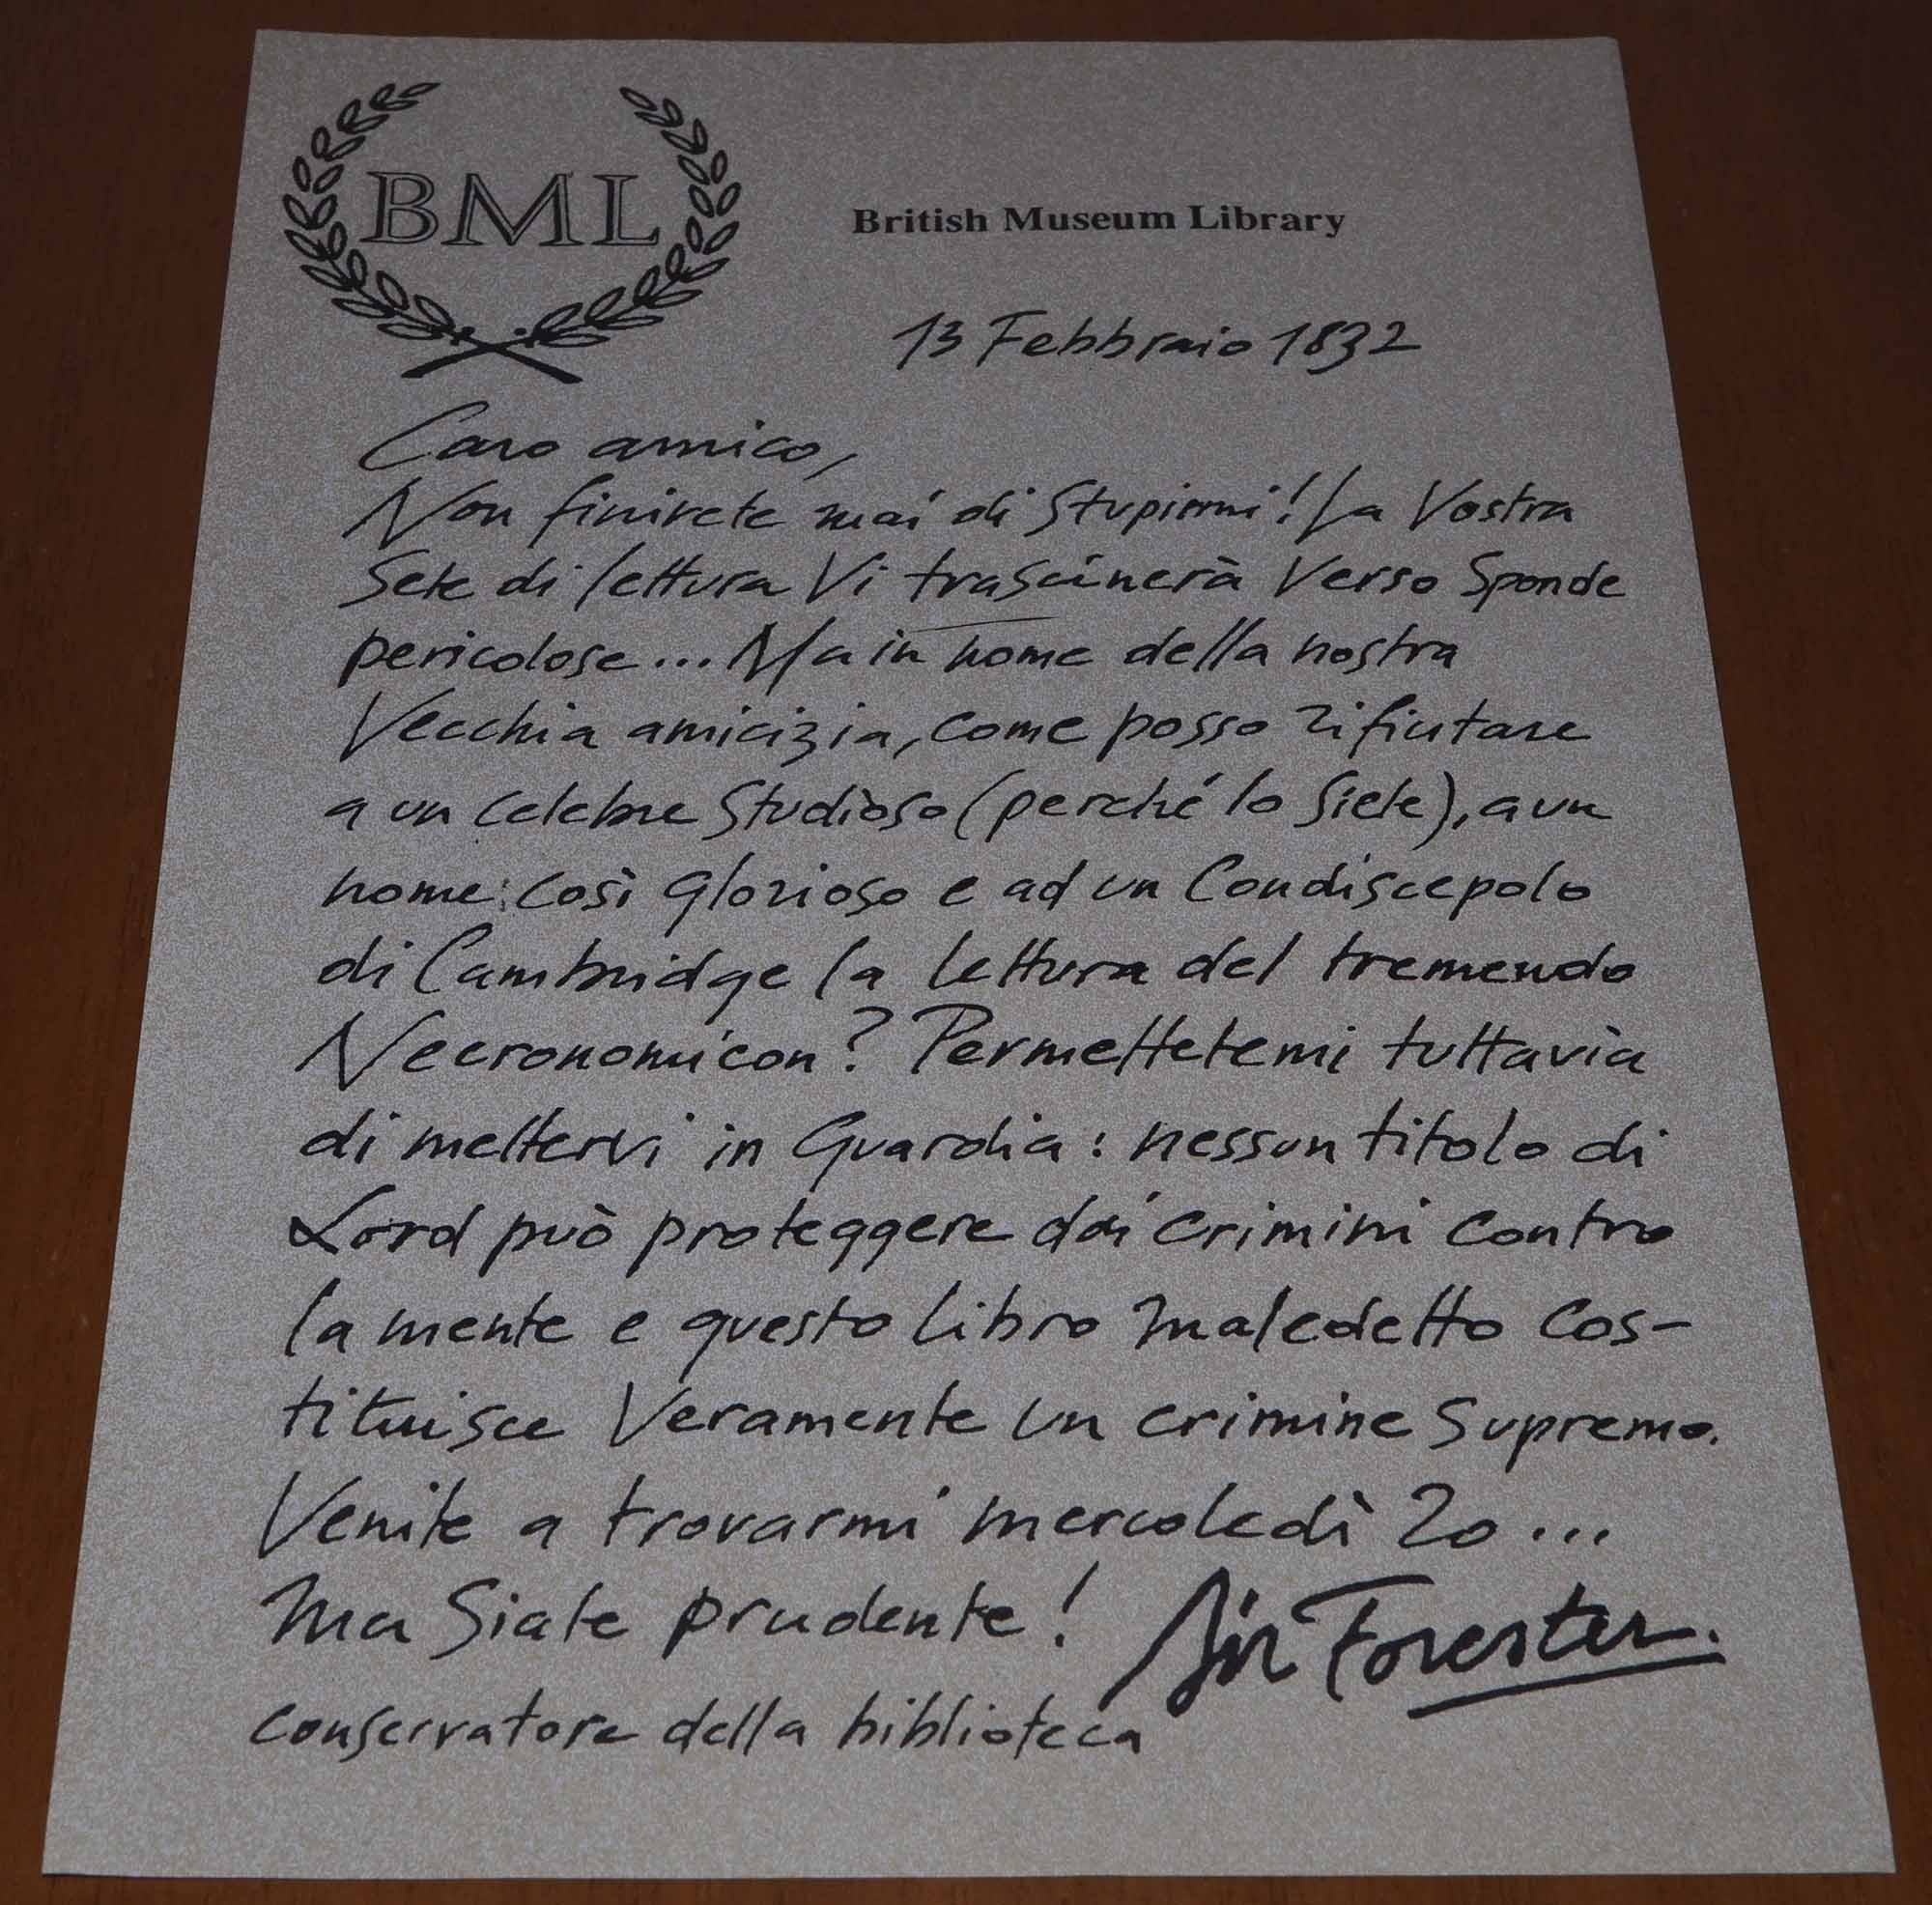 BML
British Museum Library
13 Febbraio 1832
Caro amico,
Non finirete mai di Stupirmi! La Vostra
Sete di lettura Vi trascinerà Verso Sponde
pericolose... Ma in nome della nostra
Vecchia amicizia, come posso rifiutare
a un celebre Studioso (perché lo Siete), a un
nome così glorioso e ad un Condiscepolo
di Cambridge la lettura del tremendo
Necronomicon? Permettetemi tuttavia
di mettervi in Guardia: nessun titolo di
Lord può proteggere dai crimini contro
la mente e questo libro maledetto cos-
tituisce Veramente un crimine Supremo.
Venite a trovarmi mercoledì 20...
Ma Siate prudente!
Sir Forester.
conservatore della biblioteca